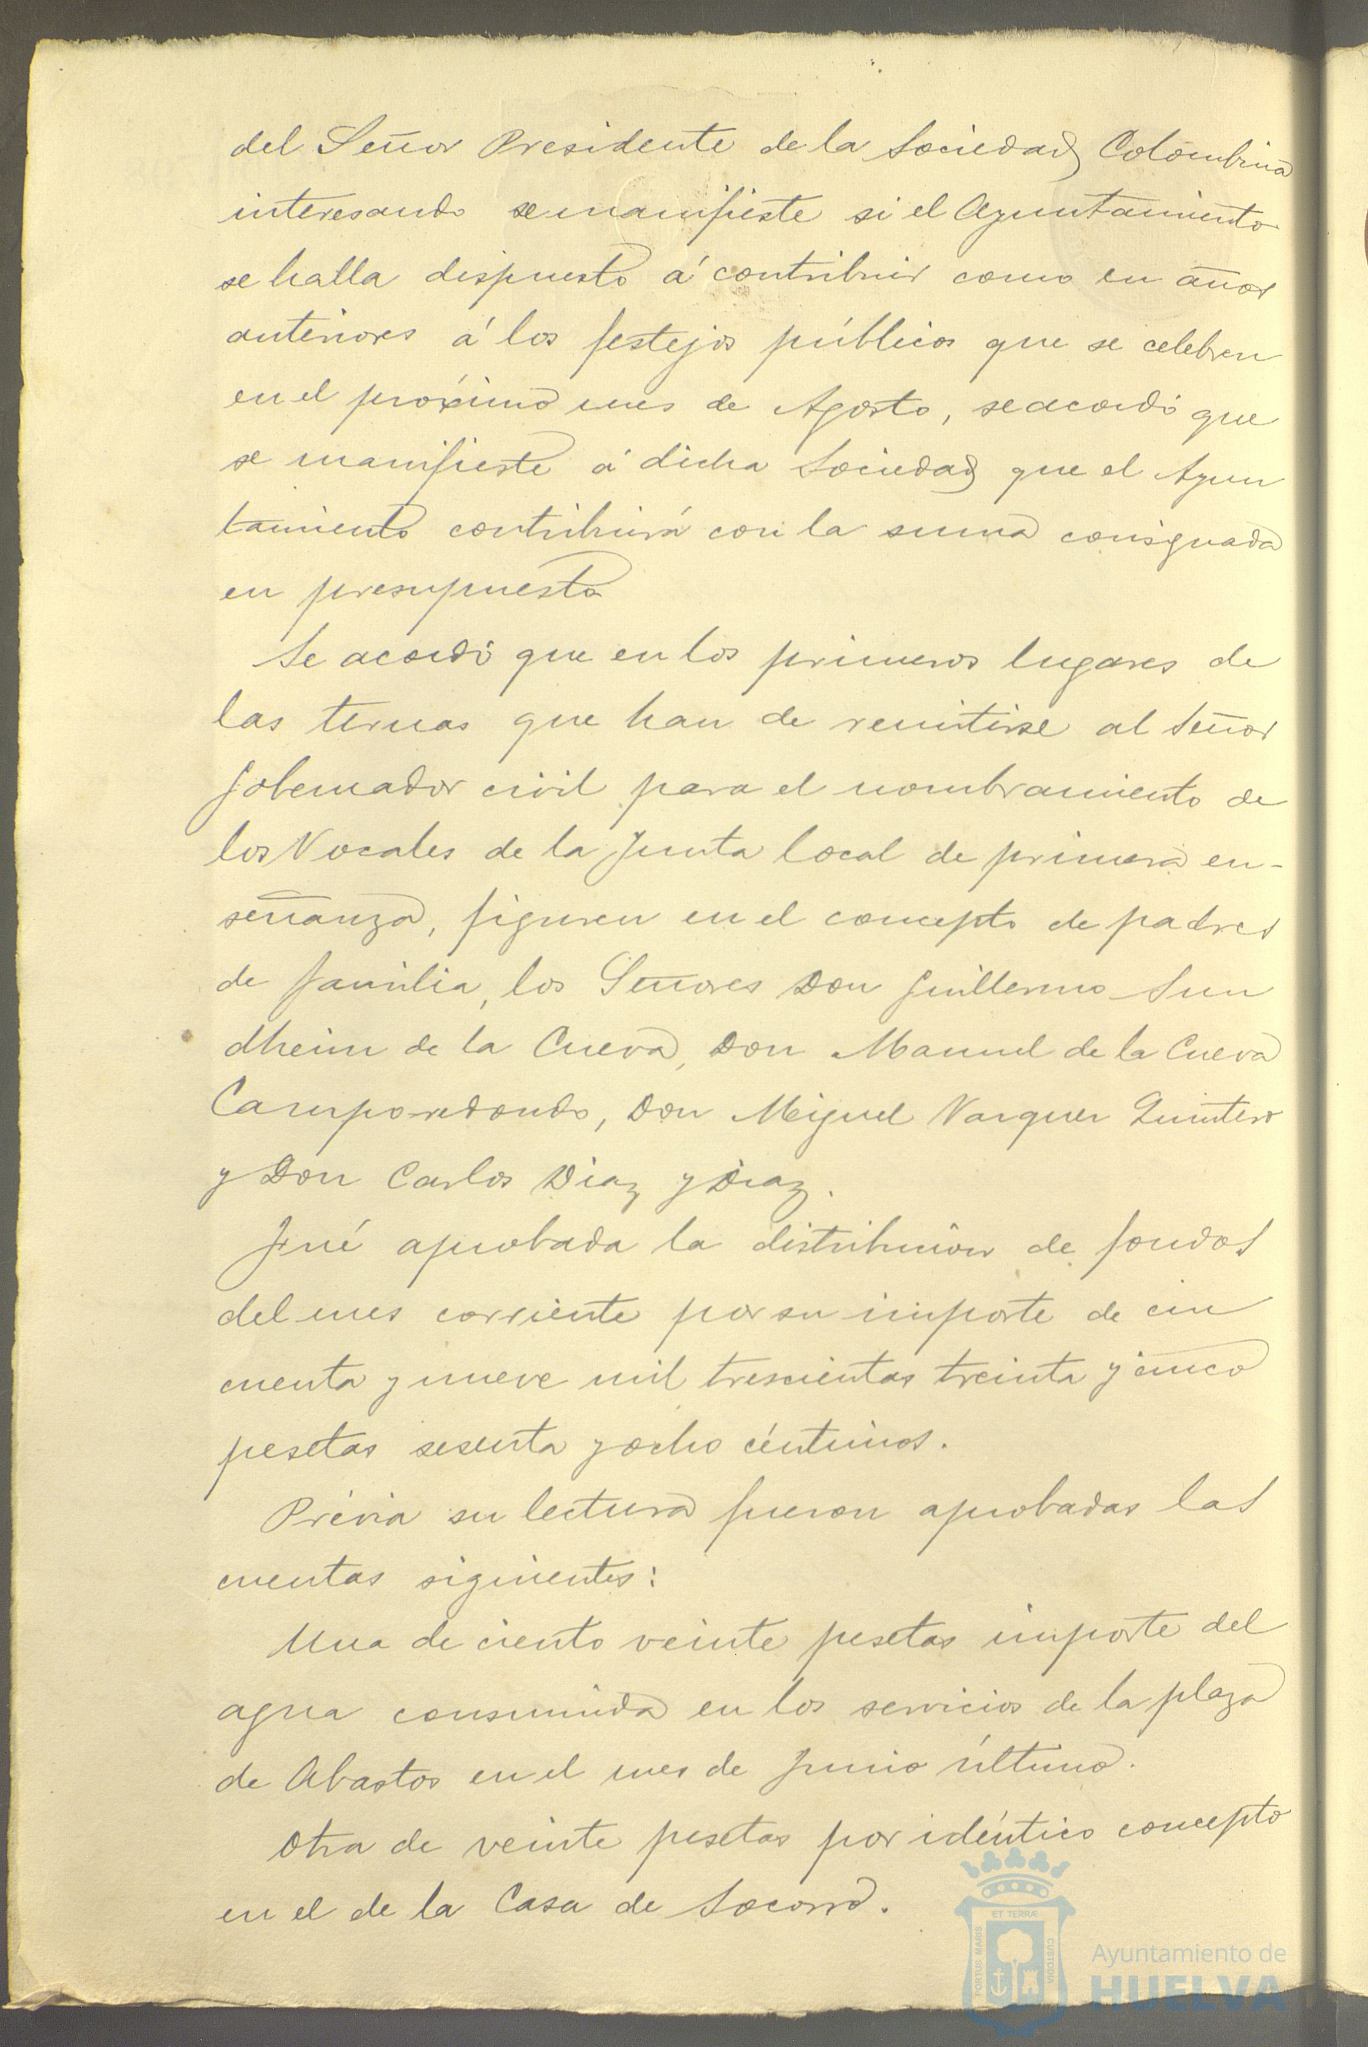 del Señor Presidente de la Sociedad Colombina
interesando se manifieste si el Ayuntamiento
se halla dispuesto á contribuir como en años
anteriores á los festejos públicos que se celebren
en el próximo mes de Agosto, se acordó que
se manifieste á dicha Sociedad que el Ayun
tamiento contribuirá con la suma consignada
en presupuesto
Se acordó que en los primeros lugares de
las ternas que han de remitirse al Señor
Gobernador civil para el nombramiento de
los Vocales de la Junta local de primera en-
señanza, figuren en el concepto de padres
de familia, los Señores Don Guillermo Sun
dheim de la Cueva, Don Manuel de la Cueva
Camporedondo, Don Miguel Vazquez Quintero
y Don Carlos Diaz y Diaz.
Fué aprobada la distribución de fondos
del mes corriente por su importe de cin
cuenta y nueve mil trescientas treinta y cinco
pesetas sesenta y ocho céntimos.
Prévia su lectura fueron aprobadas las
cuentas siguientes:
Una de ciento veinte pesetas importe del
agua consumida en los servicios de la plaza
de Abastos en el mes de Junio último.
Otra de veinte pesetas por idéntico concepto
en el de la Casa de Socorro.
PORTUS MARIS ET TERRÆ CUSTODIA
Ayuntamiento de
HUELVA